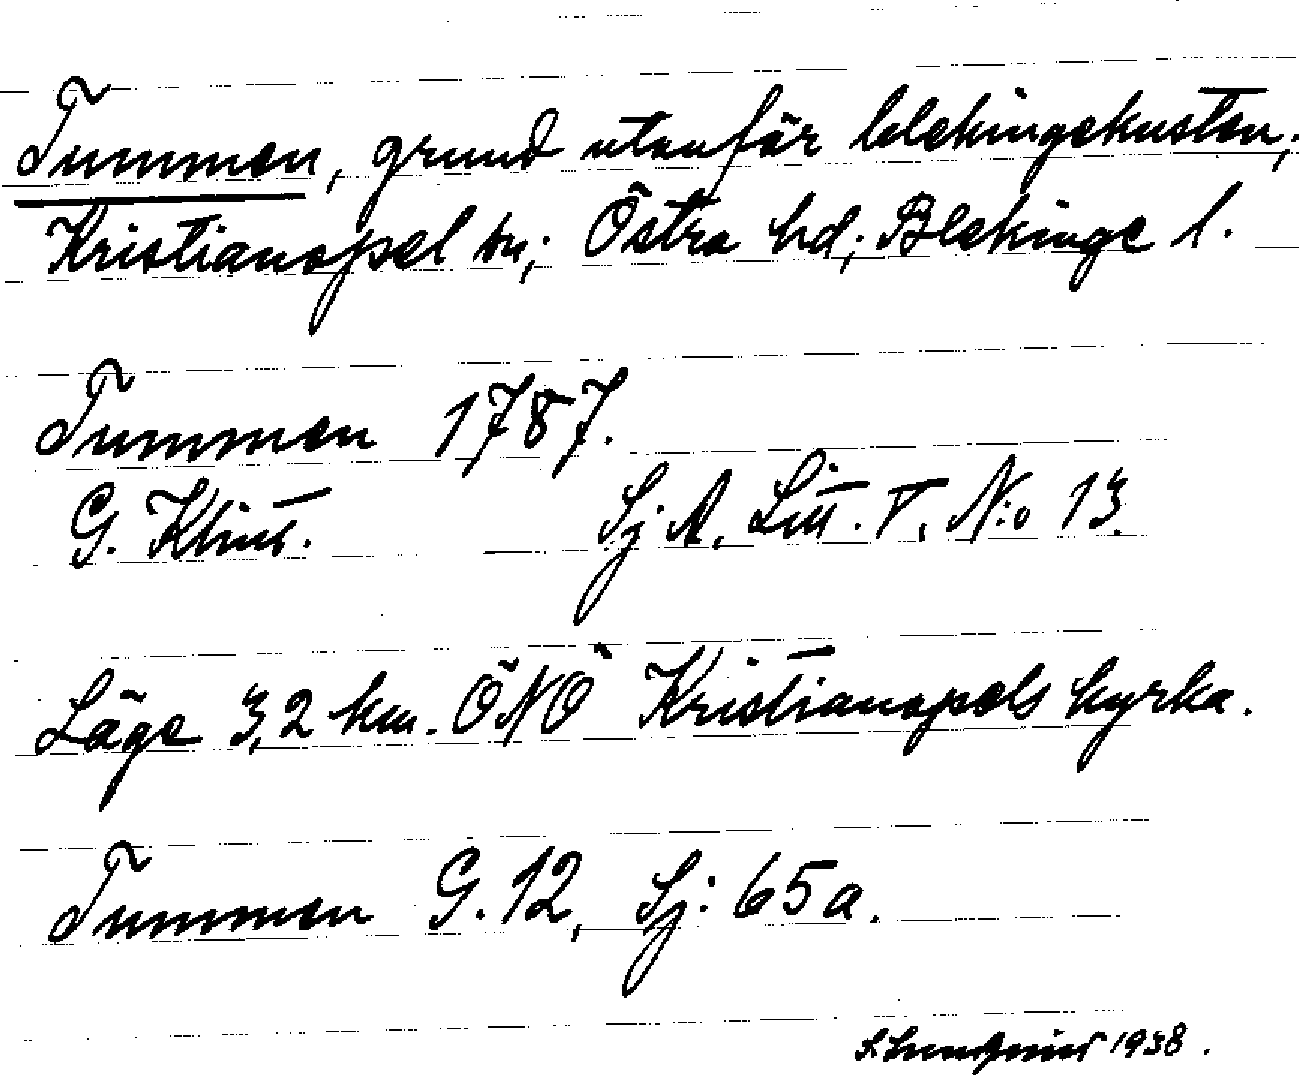 Tummen, grund utanför blekingekusten,
Kristianopel sn; Östra hd; Blekinge l.
Tummen 1787.
G. Klint. Sj A. Litt. V. N:o 13.
Läge 3,2 km. ÖNÖ Kristianopels kyrka.
Tummen G. 12, Sj: 65a.
1938.